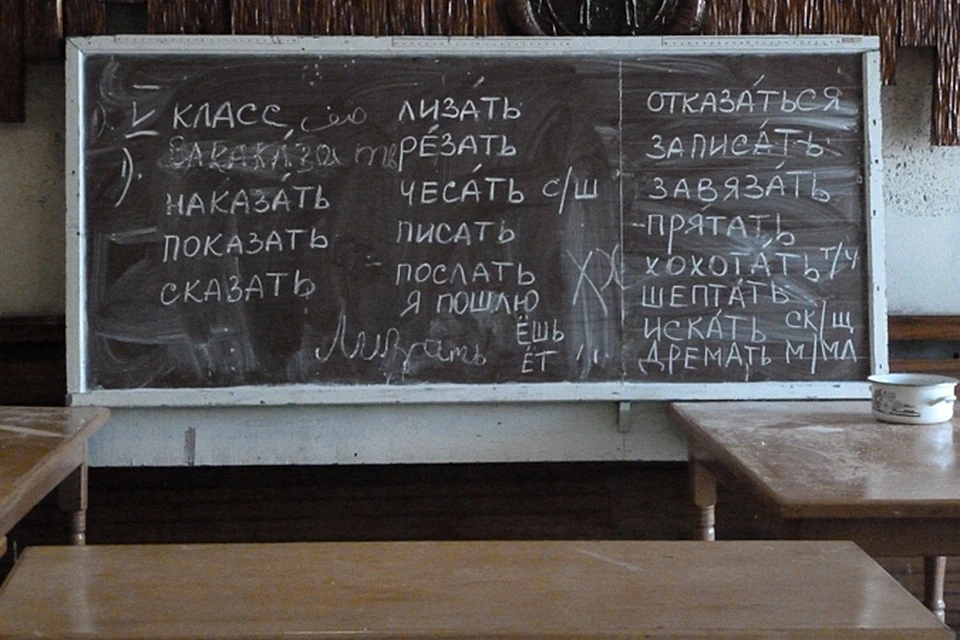 V КЛАСС صف
1).
НАКАЗА́ТЬ
ПОКАЗАТЬ
СКАЗАТЬ
ЛИЗА́ТЬ
РЕ́ЗАТЬ
ЧЕСА́ТЬ С/Ш
ПИСАТЬ
ПОСЛАТЬ
Я ПОШЛЮ
ЁШЬ
ЁТ
Лизать
ОТКАЗА́ТЬСЯ
ЗАПИСА́ТЬ
ЗАВЯЗА́ТЬ
-ПРЯ́ТАТЬ
ХОХОТА́ТЬ Т/Ч
ШЕПТА́ТЬ
ИСКА́ТЬ СК/Щ
ДРЕМА́ТЬ М/МЛ